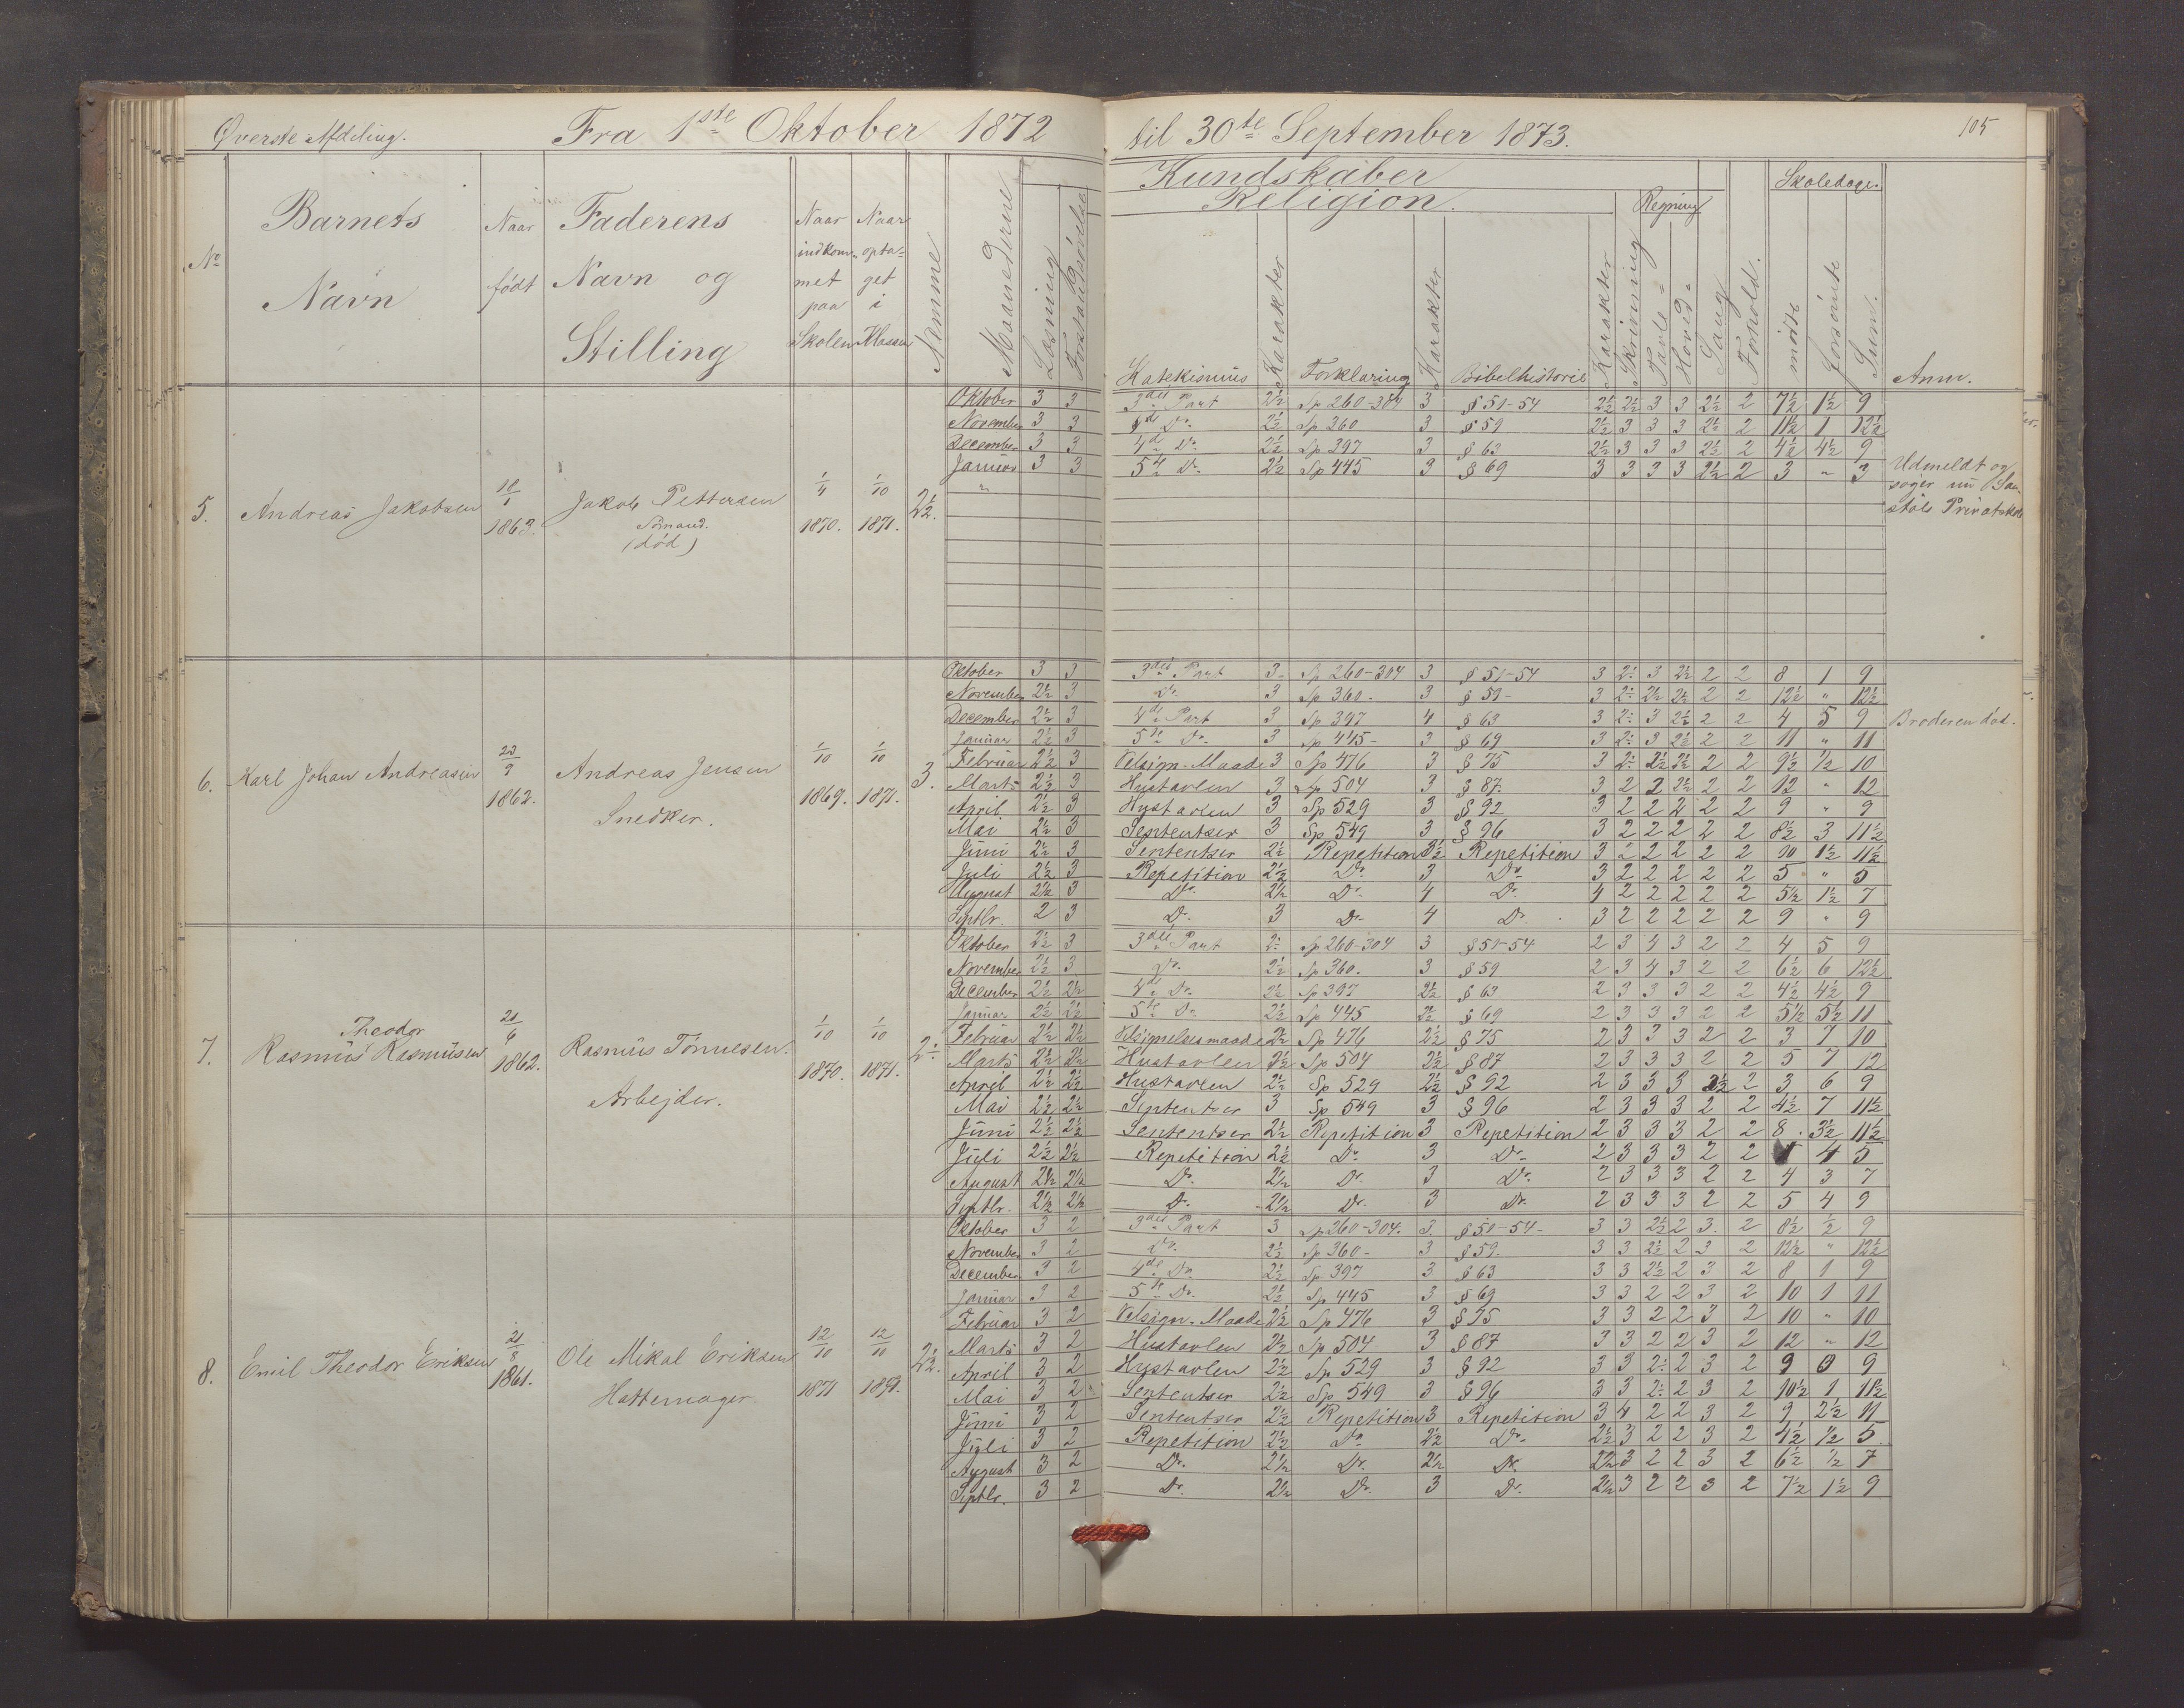 Øverste Afdeling.
Fra 1ste Oktober 1872 til 30te September 1873.
105
No
Barnets Navn
Naar født
Faderens Navn og Stilling
Naar indkommet paa Skolen
Naar optaget i Klassen
Nemme
Maanederne
Læsning
Forstandsøvelse
Kundskaber
Religion.
Katekismus
Karakter
Forklaring
Karakter
Bibelhistorie
Karakter
Skrivning
Regning
Tavle-
Hoved-
Sang
Forhold.
Skoledage.
mødt
forsømte
Sum.
Anm.
5. Andreas Jakobsen 18/1 1863. Jakob Pettersen Sømand. (død) 1/4 1870. 1/10 1871. 2½.
Oktober 3 3 3die Part 2½ Sp 260-304 3 § 51-54 2½ 2½ 3 3 2½ 2 7½ 1½ 9
November 3 3 Do. 2½ Sp 360 3 § 59 2½ 3 3 3 2½ 2 11½ 1 12½
December 3 3 4de Do. 2½ Sp 397 3 § 63 2½ 3 3 3 2½ 2 4½ 4½ 9
Januar 3 3 5te Do. 2½ Sp 445 3 § 69 3 3 3 3 2½ 2 3 " 3
Udmeldt og
søger
Privatskole
6. Karl Johan Andreasen 23/9 1862. Andreas Jensen Snedker. 1/10 1869. 1/10 1871. 3.
Oktober 3 3 3die Part 3 Sp 260-304 3 § 51-54 3 2÷ 3 2½ 2 2 8 1 9
November 2½ 3 Do. 3 Sp 360- 3 § 59- 3 2÷ 2½ 2½ 2 2 12½ " 12½
December 2½ 3 4de Part 3 Sp 397 4 § 63 3 2÷ 3 2½ 2 2 4 5 9
Broderen død.
Januar 2½ 3 5te Do. 3 Sp 445- 3 § 69 3 2÷ 3 2½ 2 2 11 " 11
Februar 2½ 3 Velsign. Maade 3 Sp 476 3 § 75 3 2÷ 2½ 2½ 2 2 9½ ½ 10
Marts 2½ 3 Hustavlen 3 Sp 504 3 § 87. 3 2 2 2½ 2 2 12 " 12
April 2½ 3 Hustavlen 3 Sp 529 3 § 92 3 2 2 2 2 2 9 " 9
Mai 2½ 3 Sententser 3 Sp 549 3 § 96 3 2 2 2 2 2 8½ 3 11½
Juni 2½ 3 Sententser 2½ Repetition 3½ Repetition 3 2 2 2 2 2 10 1½ 11½
Juli 2½ 3 Repetition 2½ Do. 3 Do. 3 2 2 2 2 2 5 " 5
August 2½ 3 Do. 2½ Do. 4 Do. 4 2 2 2 2 2 5½ 1½ 7
Septbr. 2 3 Do. 3 Do. 4 Do. 3 2 2 2 2 2 9 " 9
7. Rasmus Theodor Rasmusen 21/6 1862. Rasmus Tønnesen. Arbejder. 1/10 1870. 1/10 1871. 2÷
Oktober 2½ 3 3die Part 2÷ Sp 260-304 3 § 51-54 2 3 4 3 2 2 4 5 9
November 2½ 3 Do. 2½ Sp 360. 3 § 59 2 3 4 3 2 2 6½ 6 12½
December 2½ 2½ 4de Do. 2½ Sp 397 2½ § 63 2 3 3 3 2 2 4½ 4½ 9
Januar 2½ 2½ 5te Do. 2½ Sp 445 2½ § 69 2 3 3 3 2 2 5½ 5½ 11
Februar 2½ 2½ Velsignelsesmaade 2½ Sp 476 2½ § 75 2 3 3 3 2 2 3 7 10
Marts 2½ 2½ Hustavlen 2½ Sp 504 2½ § 87 2 3 3 3 2 2 5 7 12
April 2½ 2½ Hustavlen 2½ Sp 529 2½ § 92 2 3 3 3 2½ 2 3 6 9
Mai 2½ 2½ Sententser 3 Sp 549 3 § 96 2 3 3 3 2 2 4½ 7 11½
Juni 2½ 2½ Sententser 2½ Repetition 3 Repetition 2 3 3 3 2 2 8. 3½ 11½
Juli 2½ 2½ Repetition 2½ Do. 3 Do. 2 3 3 3 2 2 1 4 5
August 2½ 2½ Do. 2½ Do. 3 Do. 2 3 3 3 2 2 4 3 7
Septbr. 2½ 2½ Do. 2½ Do. 3 Do. 2 3 3 3 2 2 5 4 9
8. Emil Theodor Eriksen 21/8 1861. Ole Mikal Eriksen Hattemager. 12/10 1871 12/10 1871. 2½.
Oktober 3 2 3die Part 3 Sp 260-304. 3. § 51-54- 3 3 2½ 2 3. 2 8½ ½ 9
November 3 2 Do. 2½ Sp 360- 3 § 59- 3 3 2½ 2 3 2 12½ " 12½
December 3 2 4de Do 2½ Sp 397 3 § 63 3 3 2½ 2 3 2 8 1 9
Januar 3 2 5te Do. 2½ Sp 445 3 § 69 3 3 2 2 3 2 10 1 11
Februar 3 2 Velsign. Maade 2½ Sp 476 3 § 75 3 3 2 2 3 2 10 " 10
Marts 3 2 Hustavlen 2½ Sp 504 3 § 87 3 3 2 2 3 2 12 " 12
April 3 2 Hustavlen 2½ Sp 529 3 § 92 3 3 2÷ 2 3 2 9 0 9
Mai 3 2 Sententser 2½ Sp 549 3 § 96 3 3 2÷ 2 3 2 10½ 1 11½
Juni 3 2 Sententser 2½ Repetition 3 Repetition 3 4 2 2 3 2 9 2½ 11
Juli 3 2 Repetition 2½ Do. 2½ Do. 2½ 3 2 2 3 2 4½ ½ 5
August 3 2 Do. 2½ Do. 2½ Do. 2½ 3 2 2 3 2 6½ ½ 7
Septbr. 3 2 Do. 2½ Do. 3 Do. 2½ 3 2 2 3 2 7½ 1½ 9